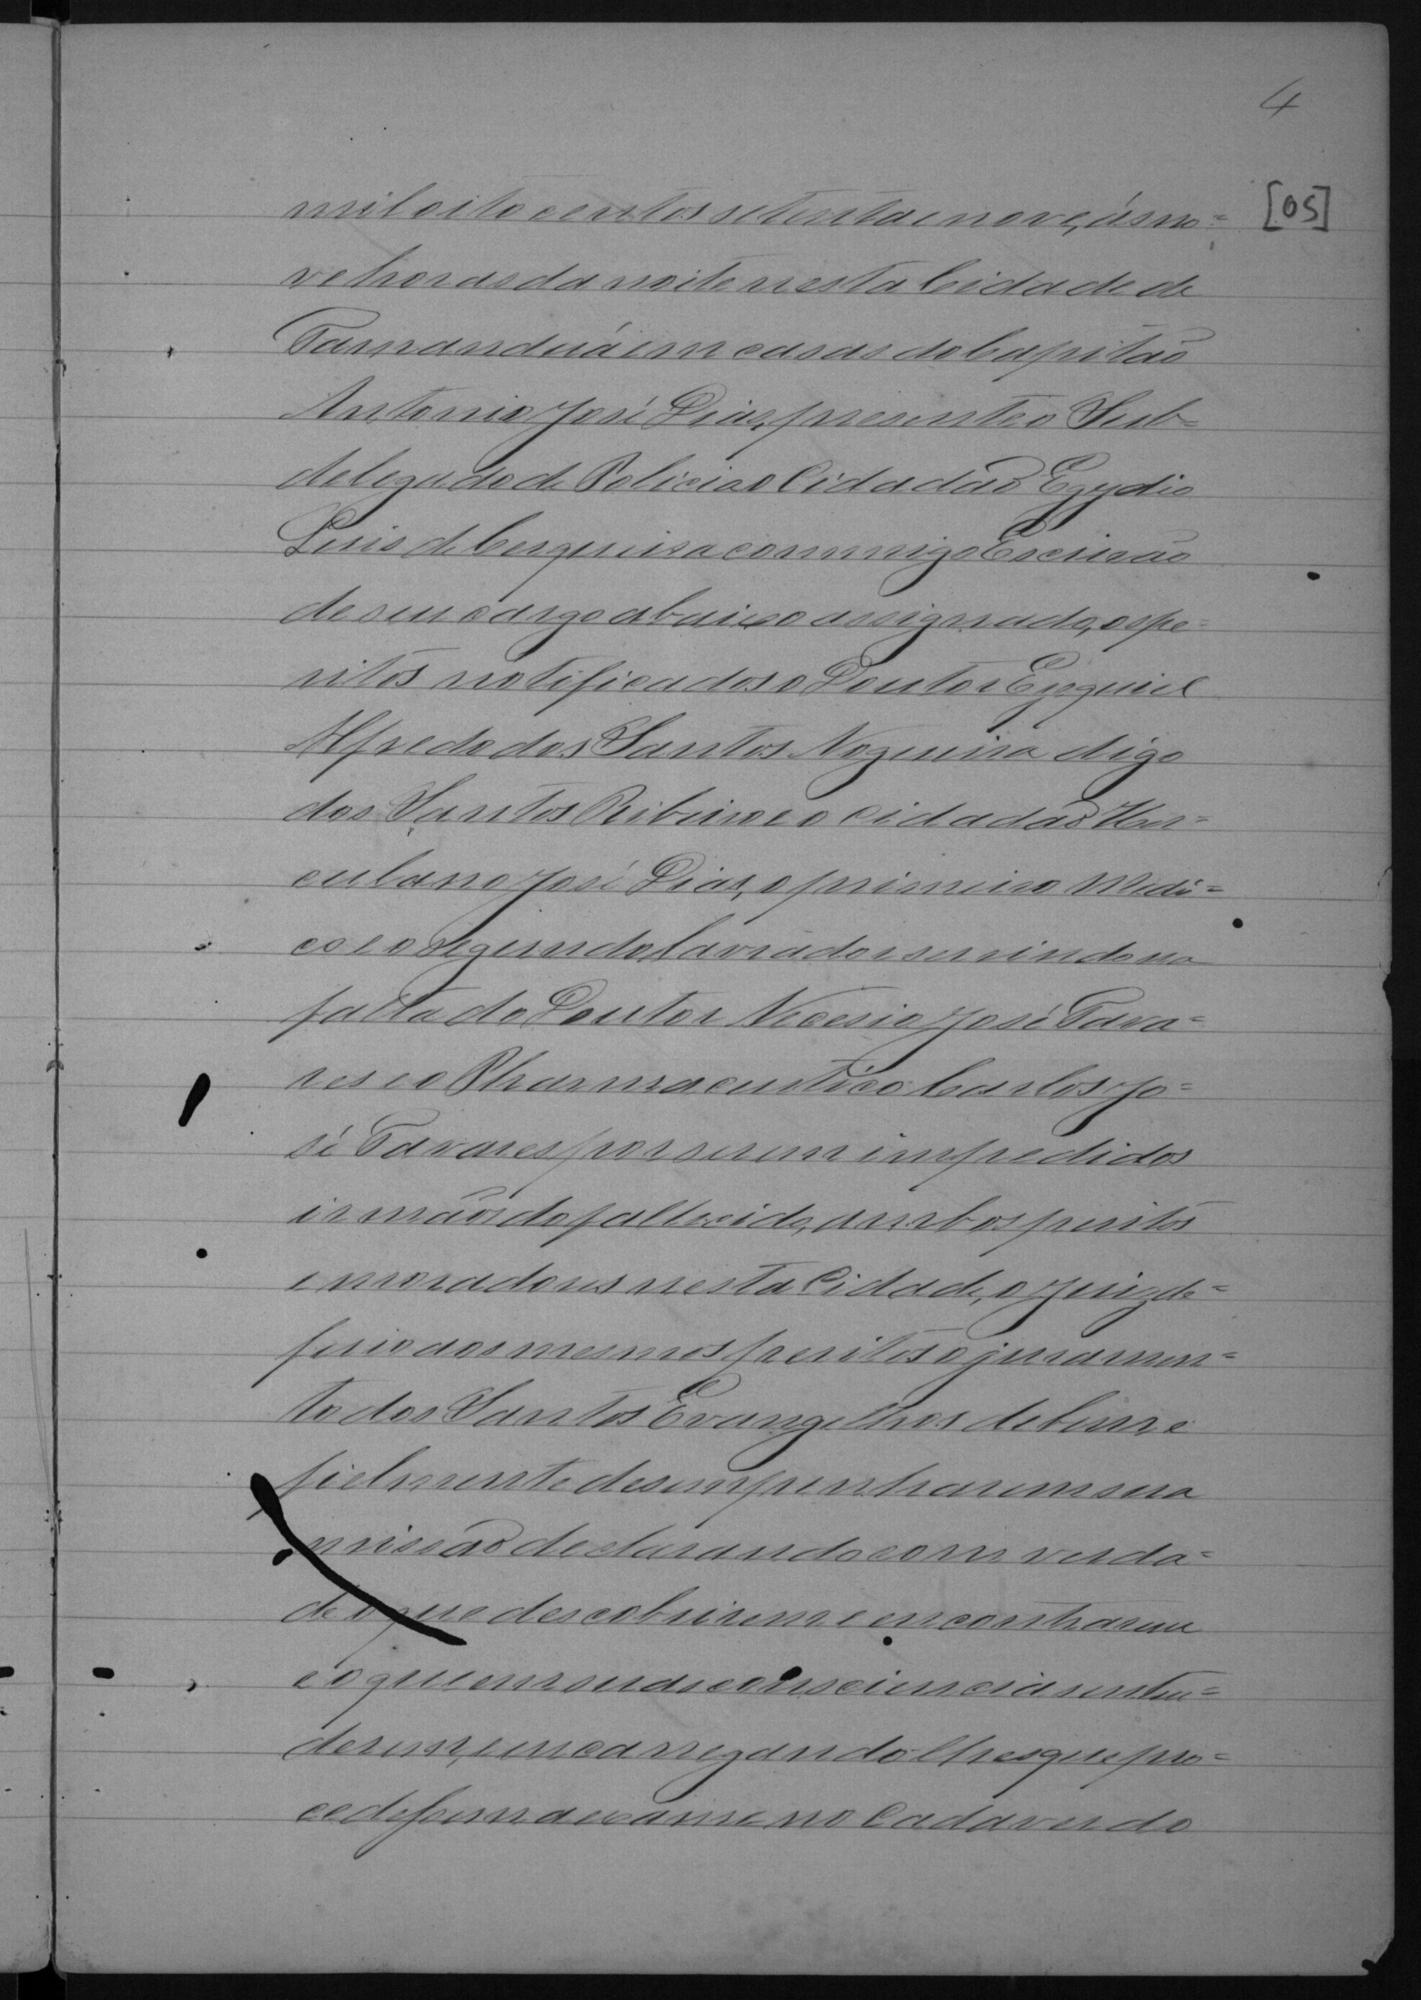 4
[05]
mil oito centos setenta e nove, ás no=
ve horas da noite nesta Cidade de
Tamanduá em casas do Capitão
Antonio José Dias, presente o Sub=
delegado de Policia o Cidadão Egydio
Luis de Cerqueira commigo Escrivão
de seu cargo abaixo assignado, os pe=
ritos notificados o Doutor Ezequiel
Alfredo dos Santos Nogueira digo
dos Santos Ribeiro e o Cidadão Her=
culano José Dias, o primeiro Medi=
co e o segundo lavrador servindo na
falta do Doutor Necesio José Tava=
res e o Pharmaceutico Carlos Jo=
sé Tavares por serem impedidos
irmãos do fallecido, ambos peritos
e moradores nesta Cidade, o Juiz de=
ferio aos mesmos peritos o juramen=
to dos Santos Evangelhos de bem e
fielmente desempenharem sua
missão declarando com verda=
de o que descobrirem e encontrarem
e o que em sua consciencia enten=
derem, e encarregandolhes que pro=
cedessem a exame no Cadaver do